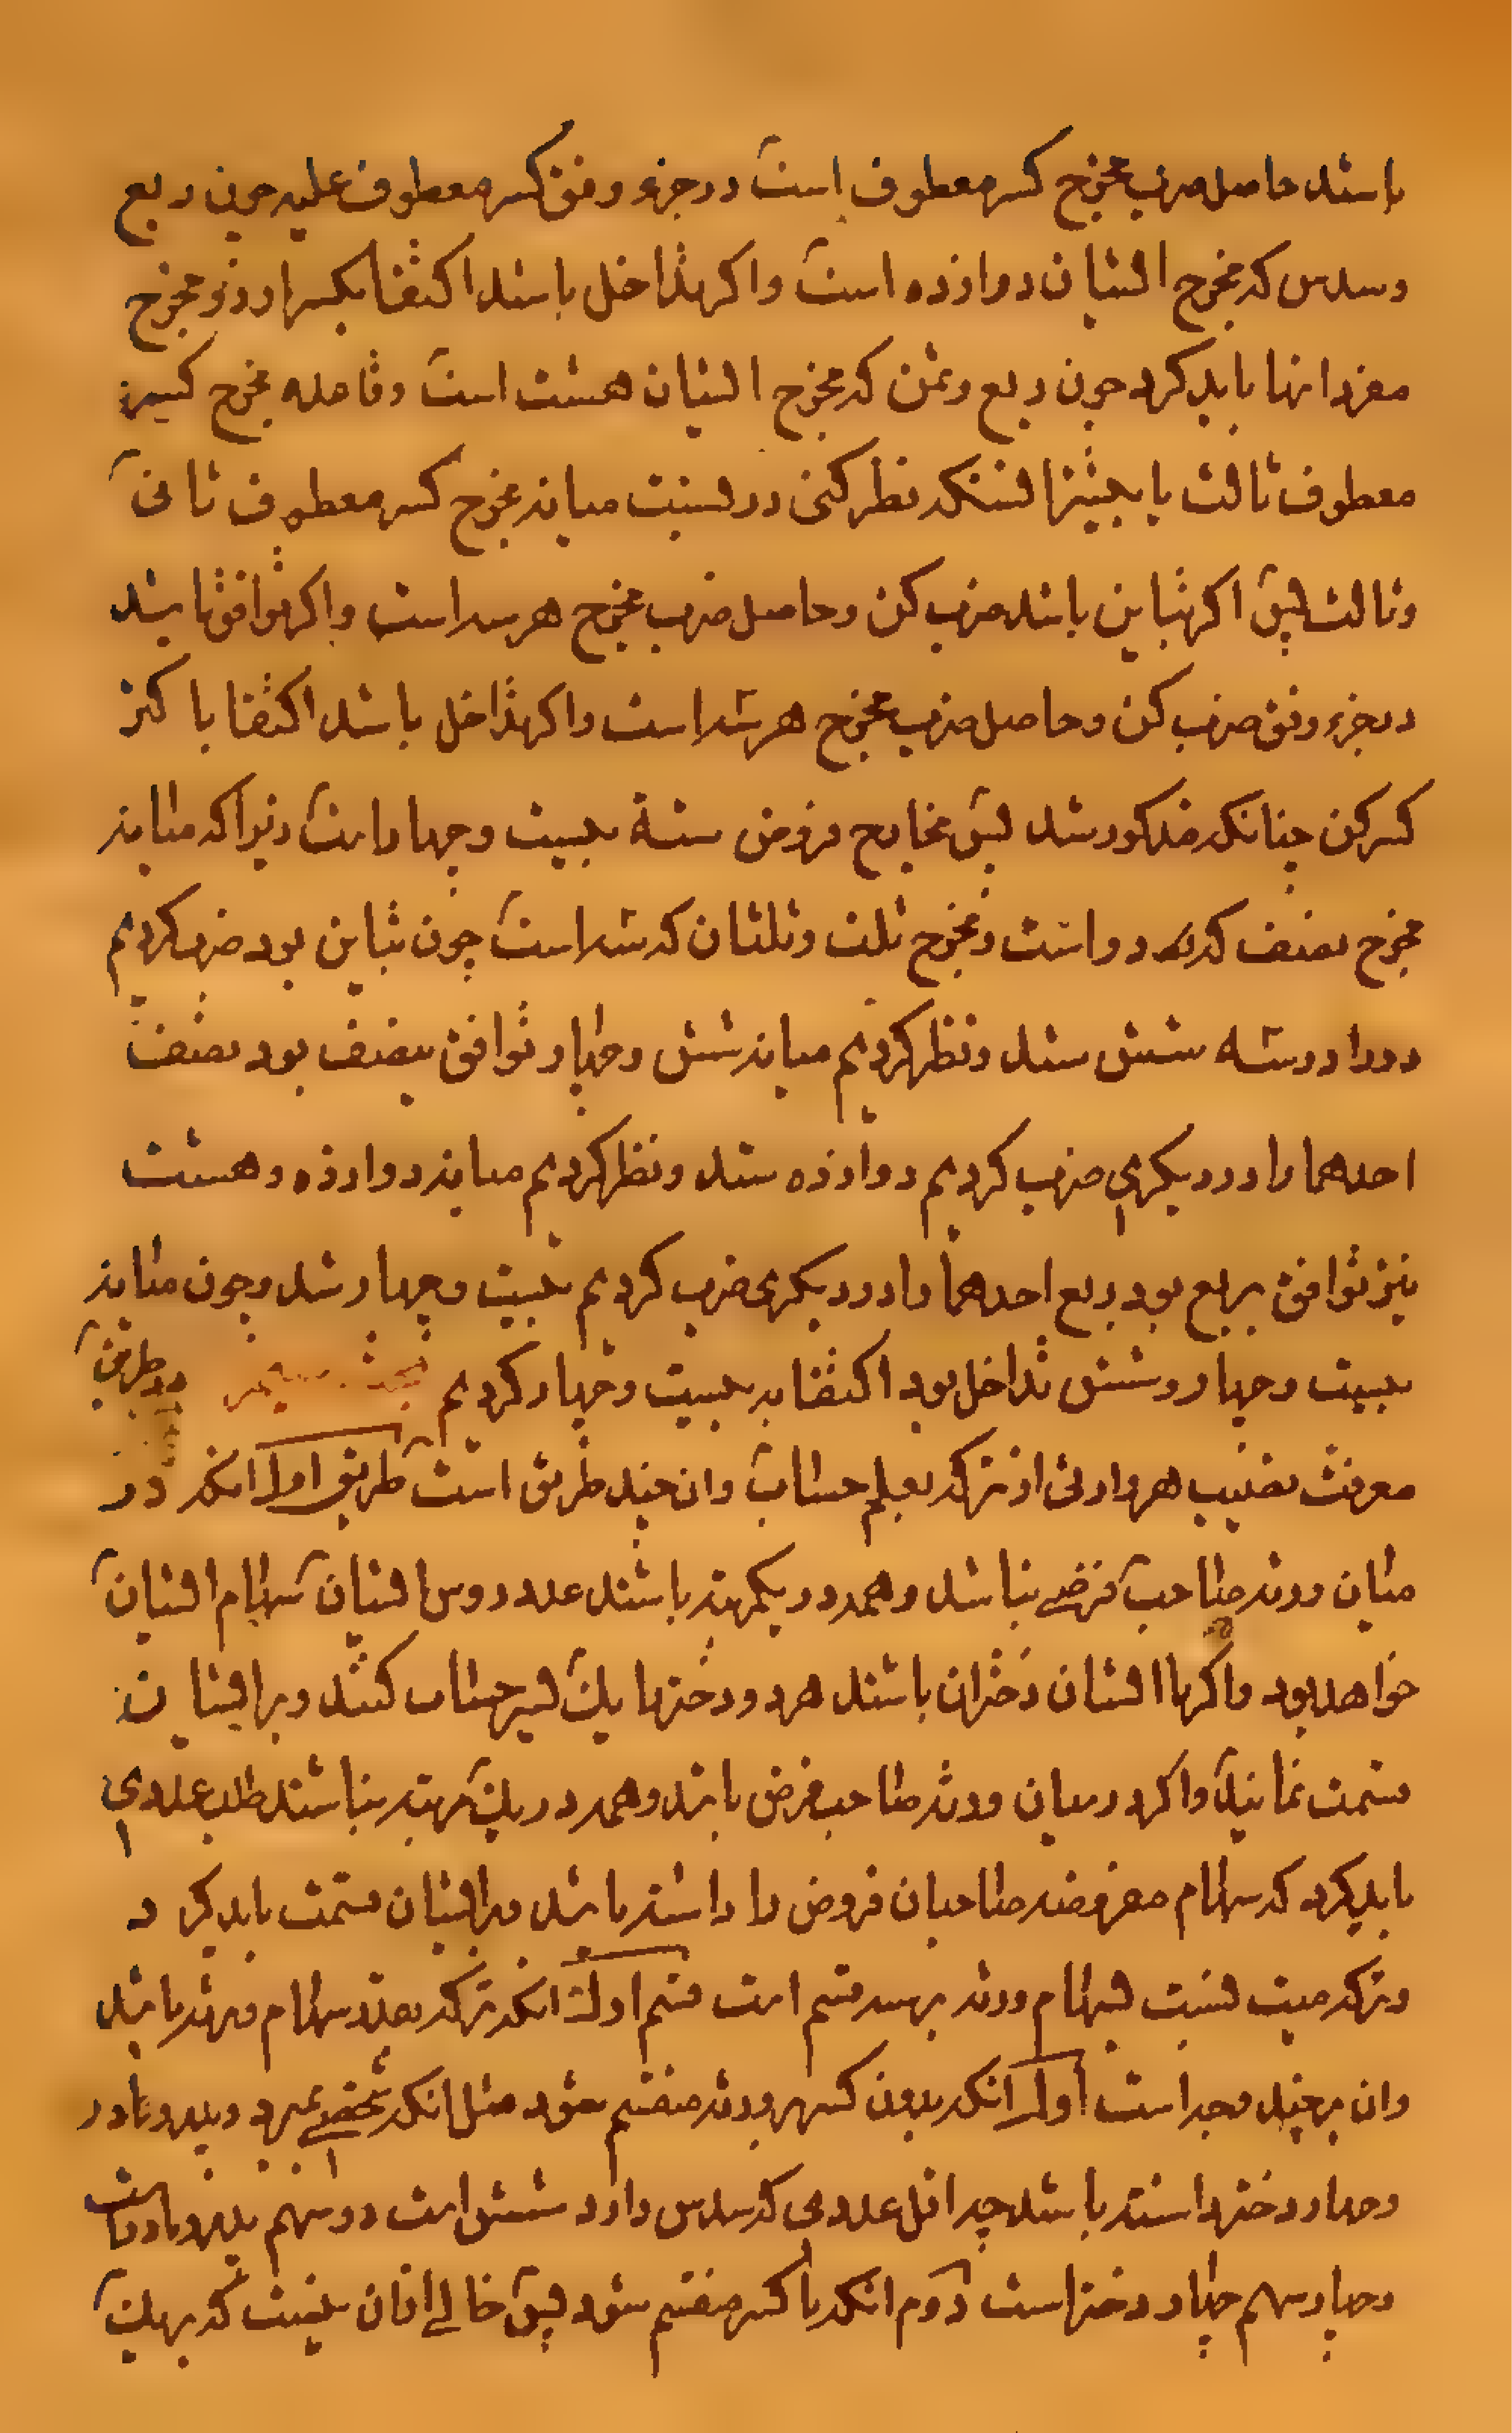 باشد حاصل ضرب مخرج کسر معطوف است در جزء وفق کسر معطوف علیه چون ربع
وسدس که مخرج ایشان دوازده است واکر تداخل باشد اکتفا بکسر از دو مخرج
مفرد انها باید کرد چون ربع وثمن که مخرج ایشان هشت است وقاعده مخرج کسر
معطوف ثالث یا بیشتر انستکه نظر کنی در نسبت میانه مخرج کسر معطوف ثانی
وثالث پس اکر تباین باشد ضرب کن وحاصل ضرب مخرج هر سه است واکر توافق باشد
در جزء وفق ضرب کن وحاصل ضرب مخرج هر سه است واکر تداخل باشد اکتفا باکثر
کسر کن چنانکه مذکور شد پس مخارج فروض ستة بیست وچهار است زیرا که میانه
مخرج نصف که دو است ومخرج ثلث وثلثان که سه است چون تباین بود ضرب کردیم
دو را در سه شش شد ونظر کردیم میانه شش وچهار توافق بنصف بود نصف
احدهما را در دیکری ضرب کردیم دوازده شد ونظر کردیم میانه دوازده وهشت
نیز توافق بربع بود ربع احدهما را در دیکری ضرب کردیم بیست وچهار شد وچون میانه
بیست وچهار وشش تداخل بود اکتفا به بیست وچهار کردیم بحث در طریق
معرفت نصیب هر وارثی از ترکه بعلم حساب وان چند طریق است طریق اول انکه در
میان ورثه صاحب فرضی نباشد وهمه در یکمرتبه باشند عدد روس ایشان سهام ایشان
خواهد بود واکر با ایشان دختران باشند هر دو دختر را یک پسر حساب کنند وبر ایشان
قسمت نمایند واکر در میان ورثه صاحب فرض باشد وهمه در یک مرتبه نباشند طلب عددی
باید کرد که سهام مفروضه صاحبان فروض را داشته باشد وبر ایشان قسمت باید کرد
وترکه میت نسبت بسهام ورثه بر سه قسم است قسم اول انکه ترکه بقدر سهام ورثه باشد
وان بر چند وجه است اول انکه بدون کسر بر ورثه منقسم شود مثل انکه شخصی بمیرد وپدر ومادر
وچهار دختر داشته باشد چه اقل عددی که سدس دارد شش است دو سهم پدر ومادر است
وچهار سهم چهار دختر است دوم انکه با کسر منقسم شود پس خالی از ان نیست که بر یک